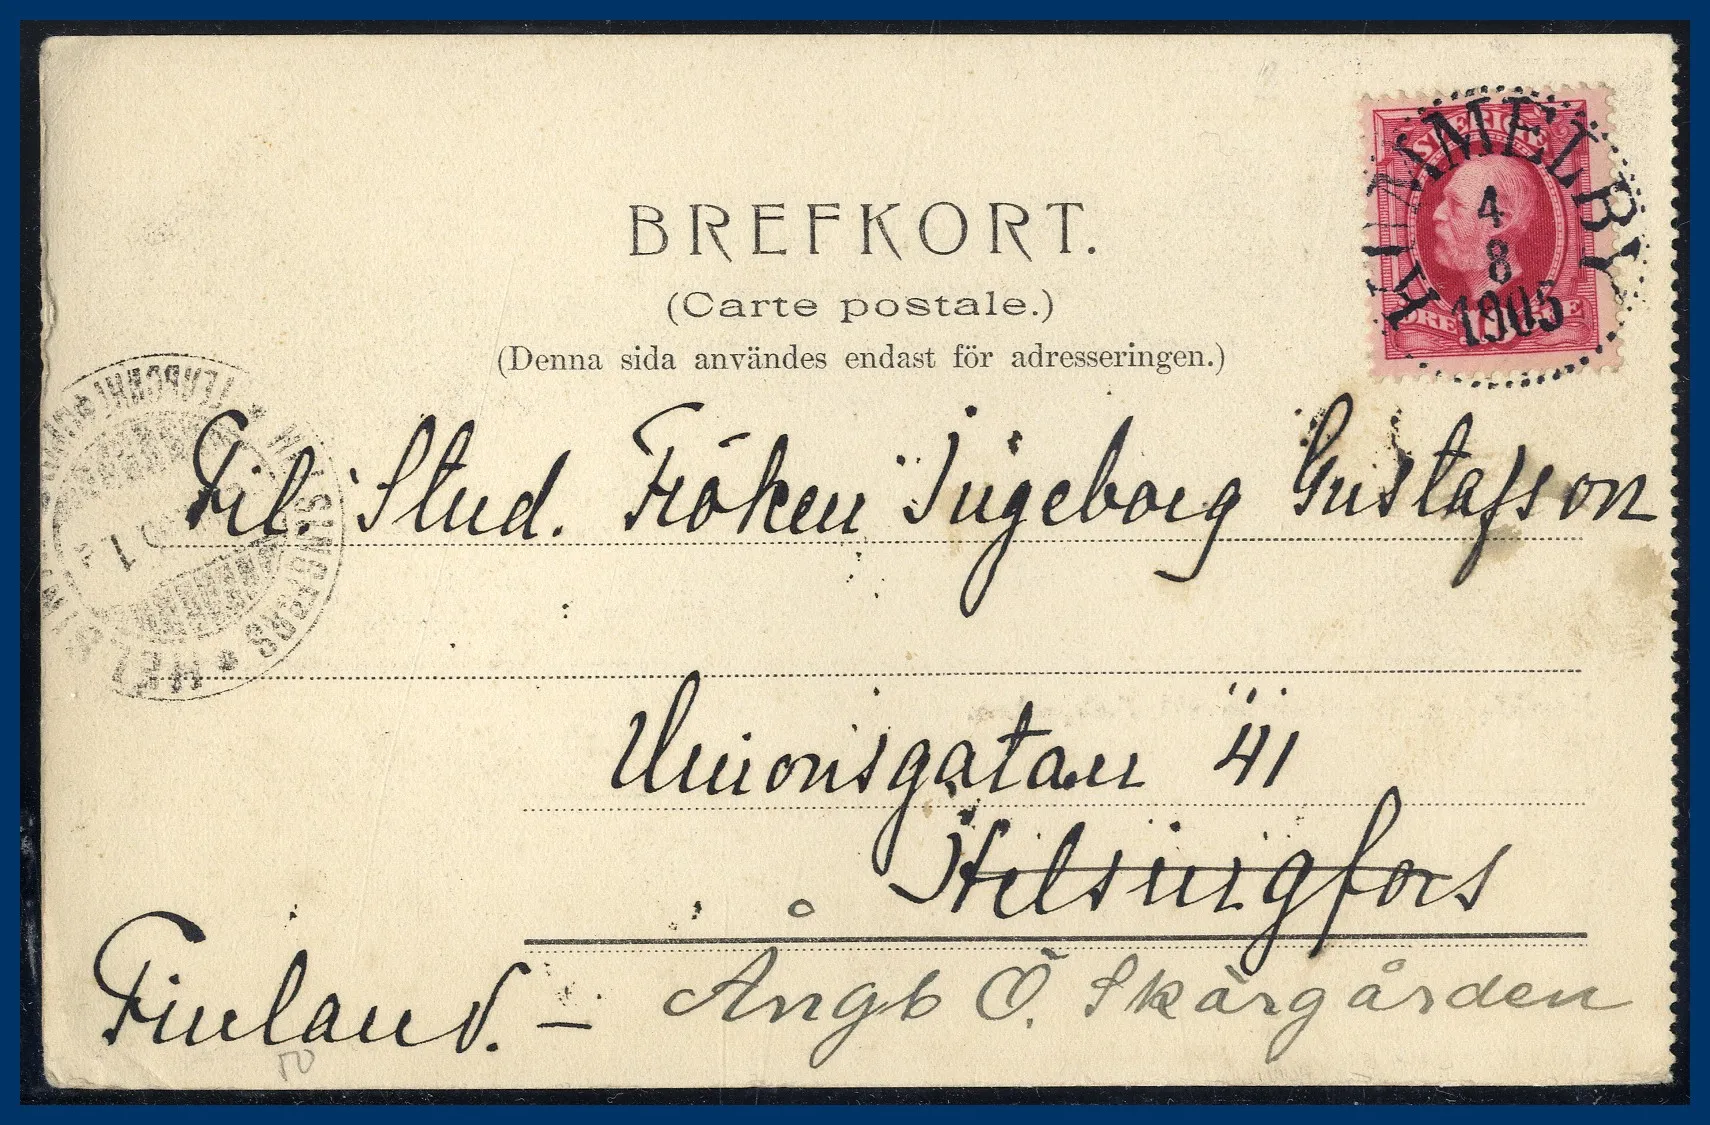 BREFKORT.
(Carte postale.)
(Denna sida användes endast för adresseringen.)
SVERIGE
HUMMELBY
4
8
1905
ÖRE
Fil. Stud. Fröken Ingeborg Gustafsson
Unionsgatan 41
Helsingfors
Finland. –
Ångb Ö. Skärgården
HELSINGFORS